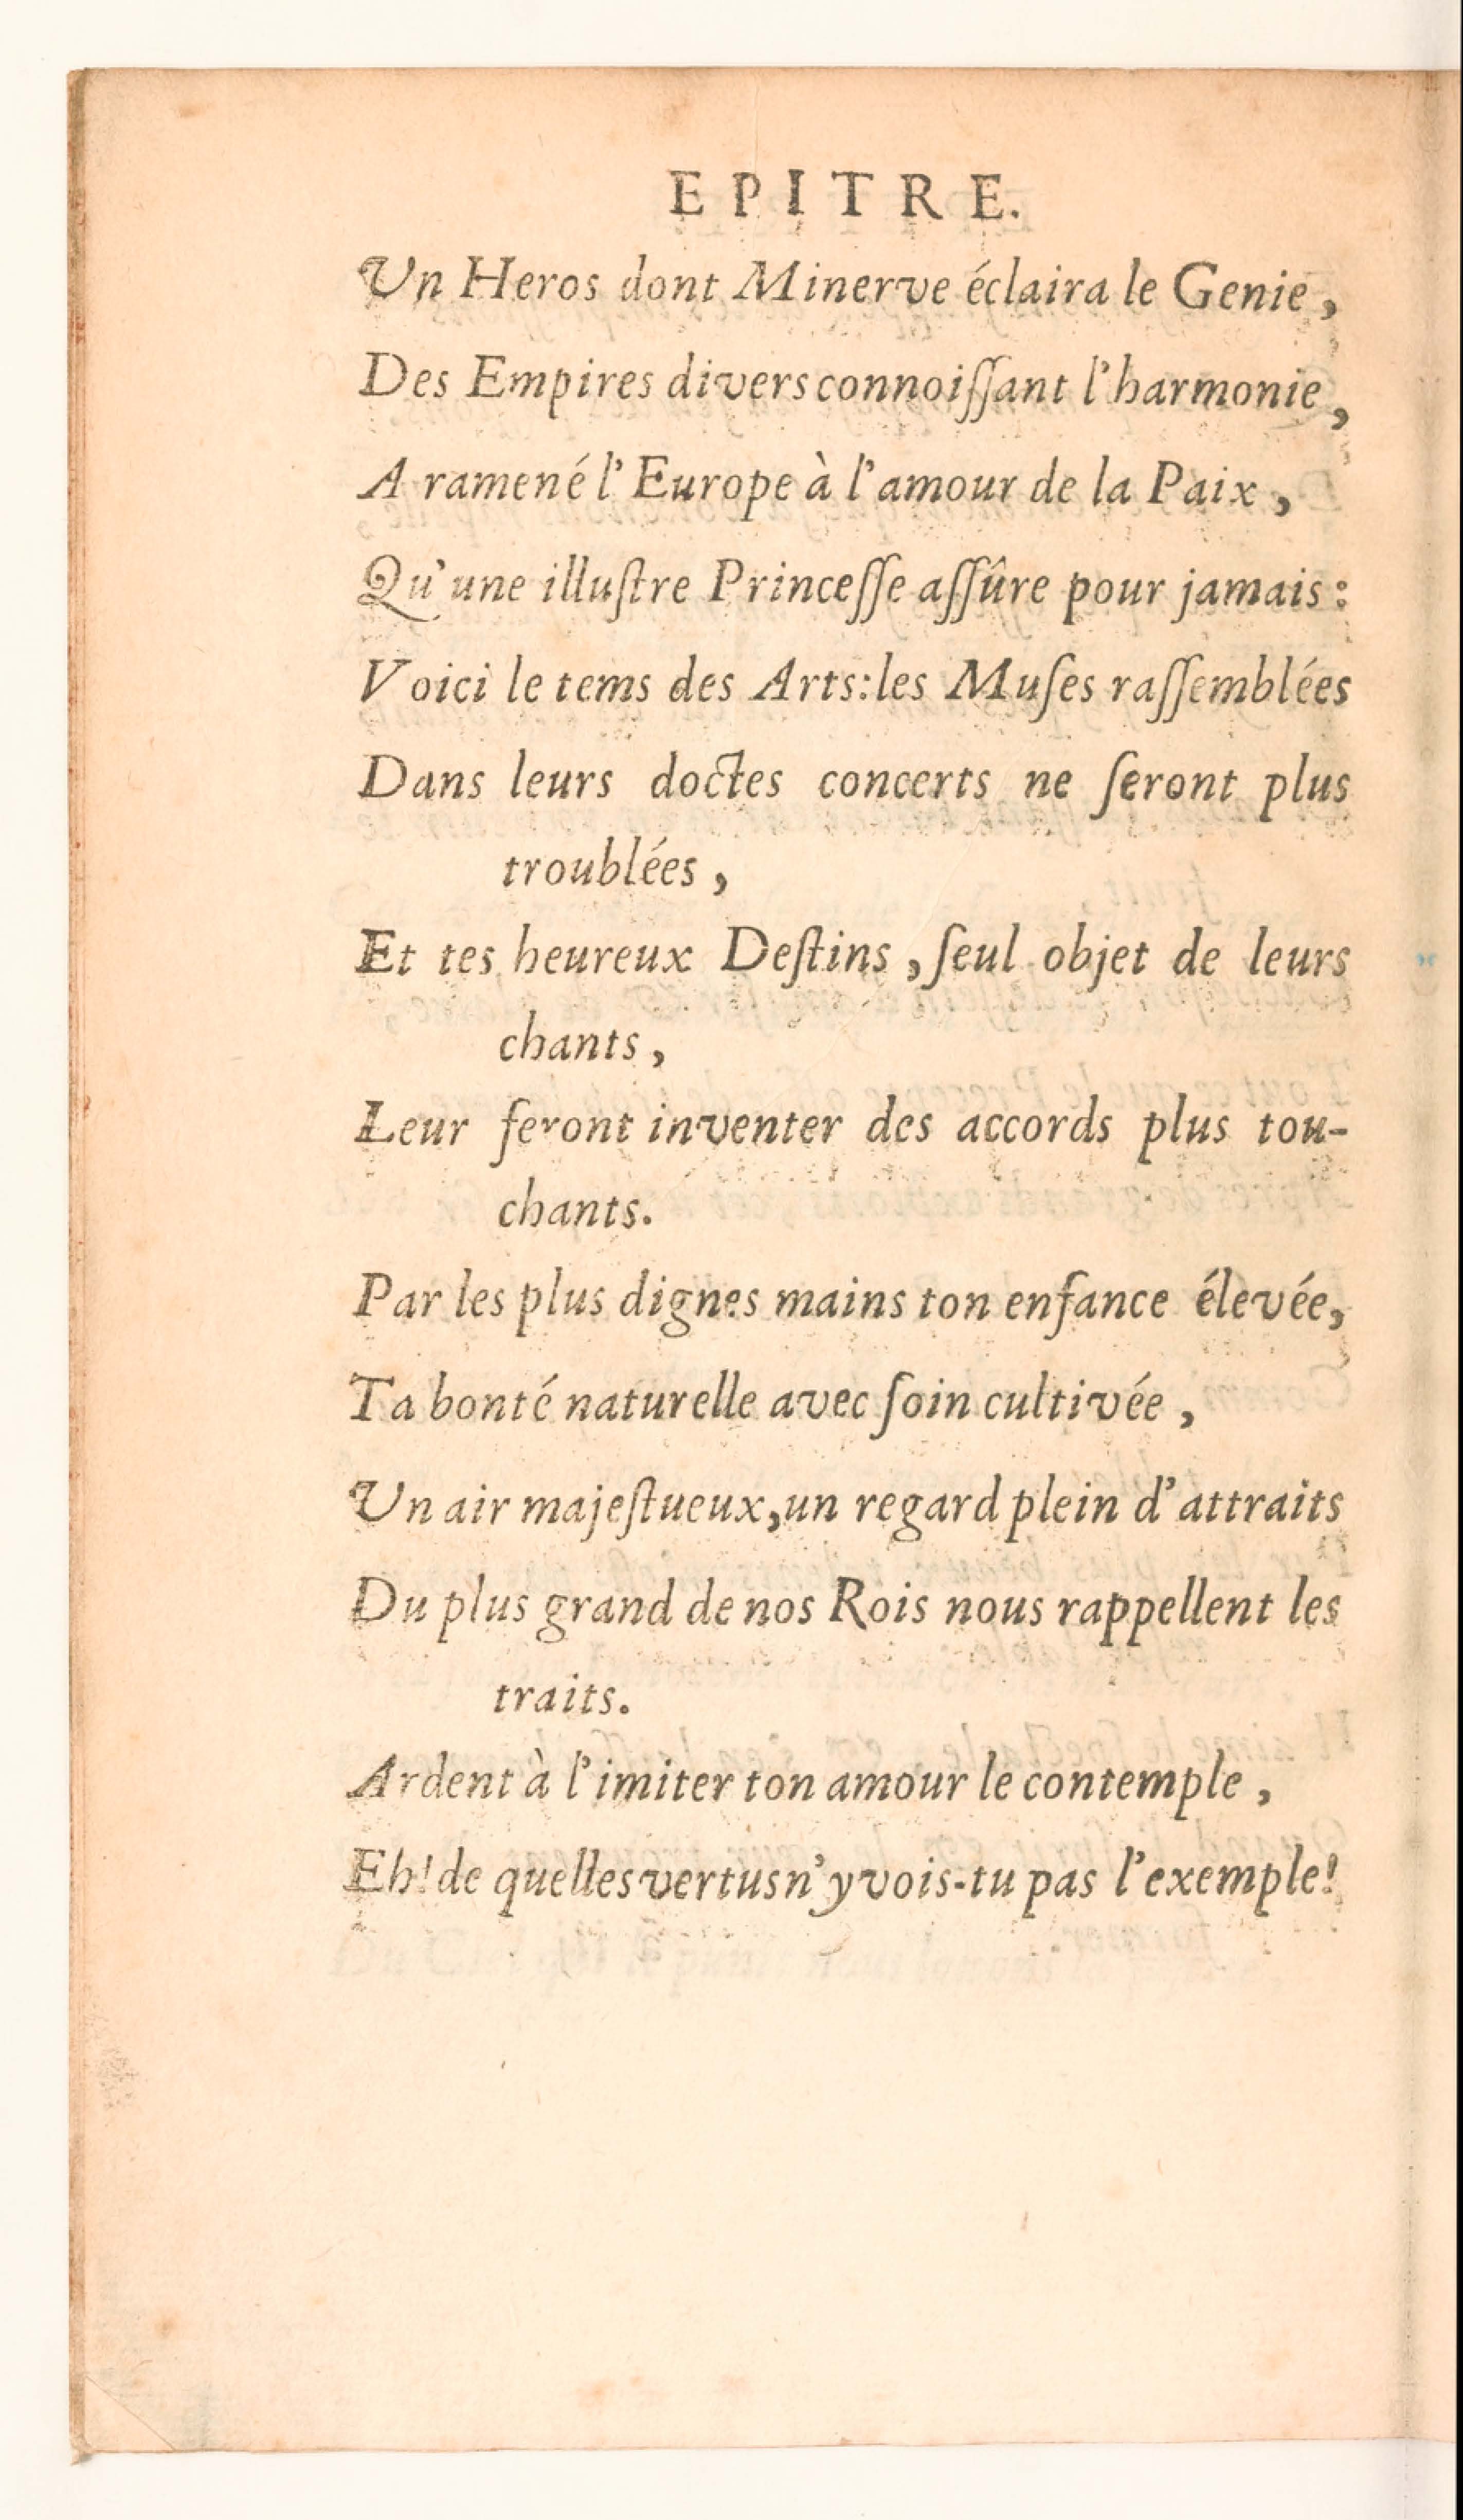 EPITRE.
Un Heros dont Minerve éclaira le Genie,
Des Empires divers connoiſſant l'harmonie,
A ramené l'Europe à l'amour de la Paix,
Qu'une illuſtre Princeſſe aſſûre pour jamais:
Voici le tems des Arts: les Muſes raſſemblées
Dans leurs doctes concerts ne ſeront plus
troublées,
Et tes heureux Deſtins, ſeul objet de leurs
chants,
Leur feront inventer des accords plus tou-
chants.
Par les plus dignes mains ton enfance élevée,
Ta bonté naturelle avec ſoin cultivée,
Un air majeſtueux, un regard plein d'attraits
Du plus grand de nos Rois nous rappellent les
traits.
Ardent à l'imiter ton amour le contemple,
Eh! de quelles vertus n'y vois-tu pas l'exemple!